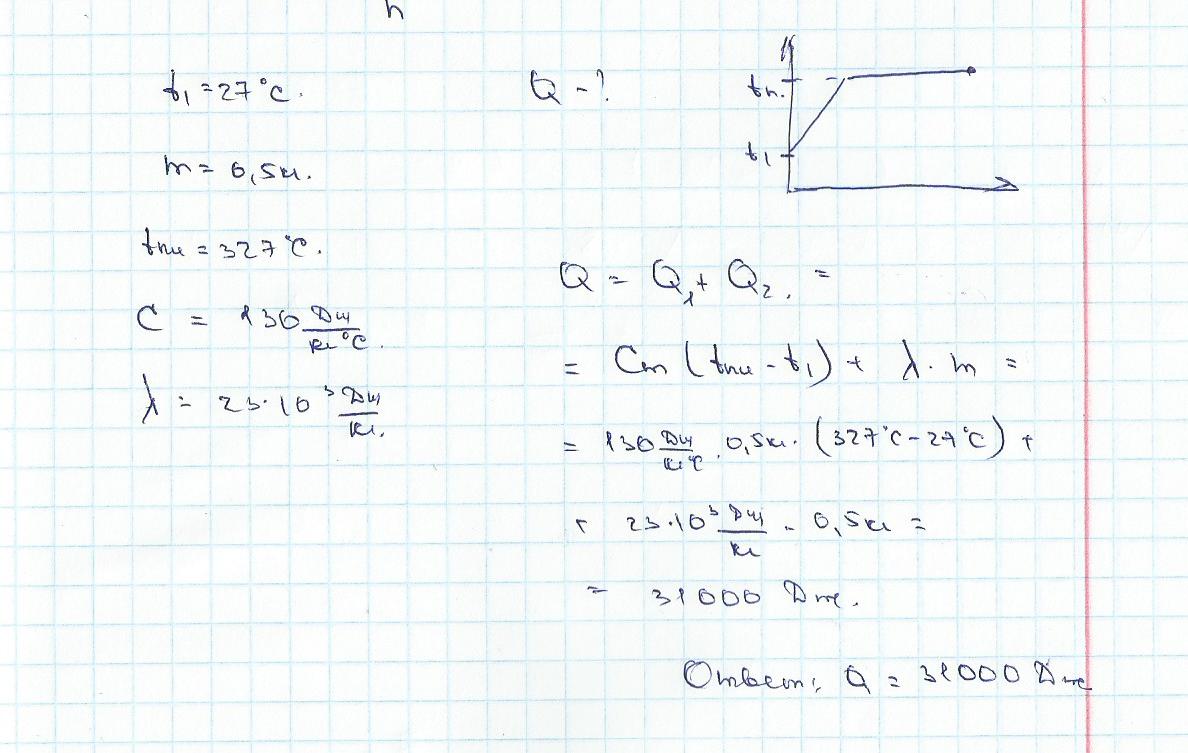 h
t₁ = 27°C.
Q - ?
tп.
t₁
m = 0,5кг.
tпл = 327°C.
C = 130 Дж/кг°C.
λ = 23·10³ Дж/кг.
Q = Q₁ + Q₂. =
= Cm (tпл - t₁) + λ · m =
= 130 Дж/кг°C · 0,5кг · (327°C - 27°C) +
+ 23·10³ Дж/кг · 0,5кг =
= 31000 Дж.
Ответ: Q = 31000 Дж